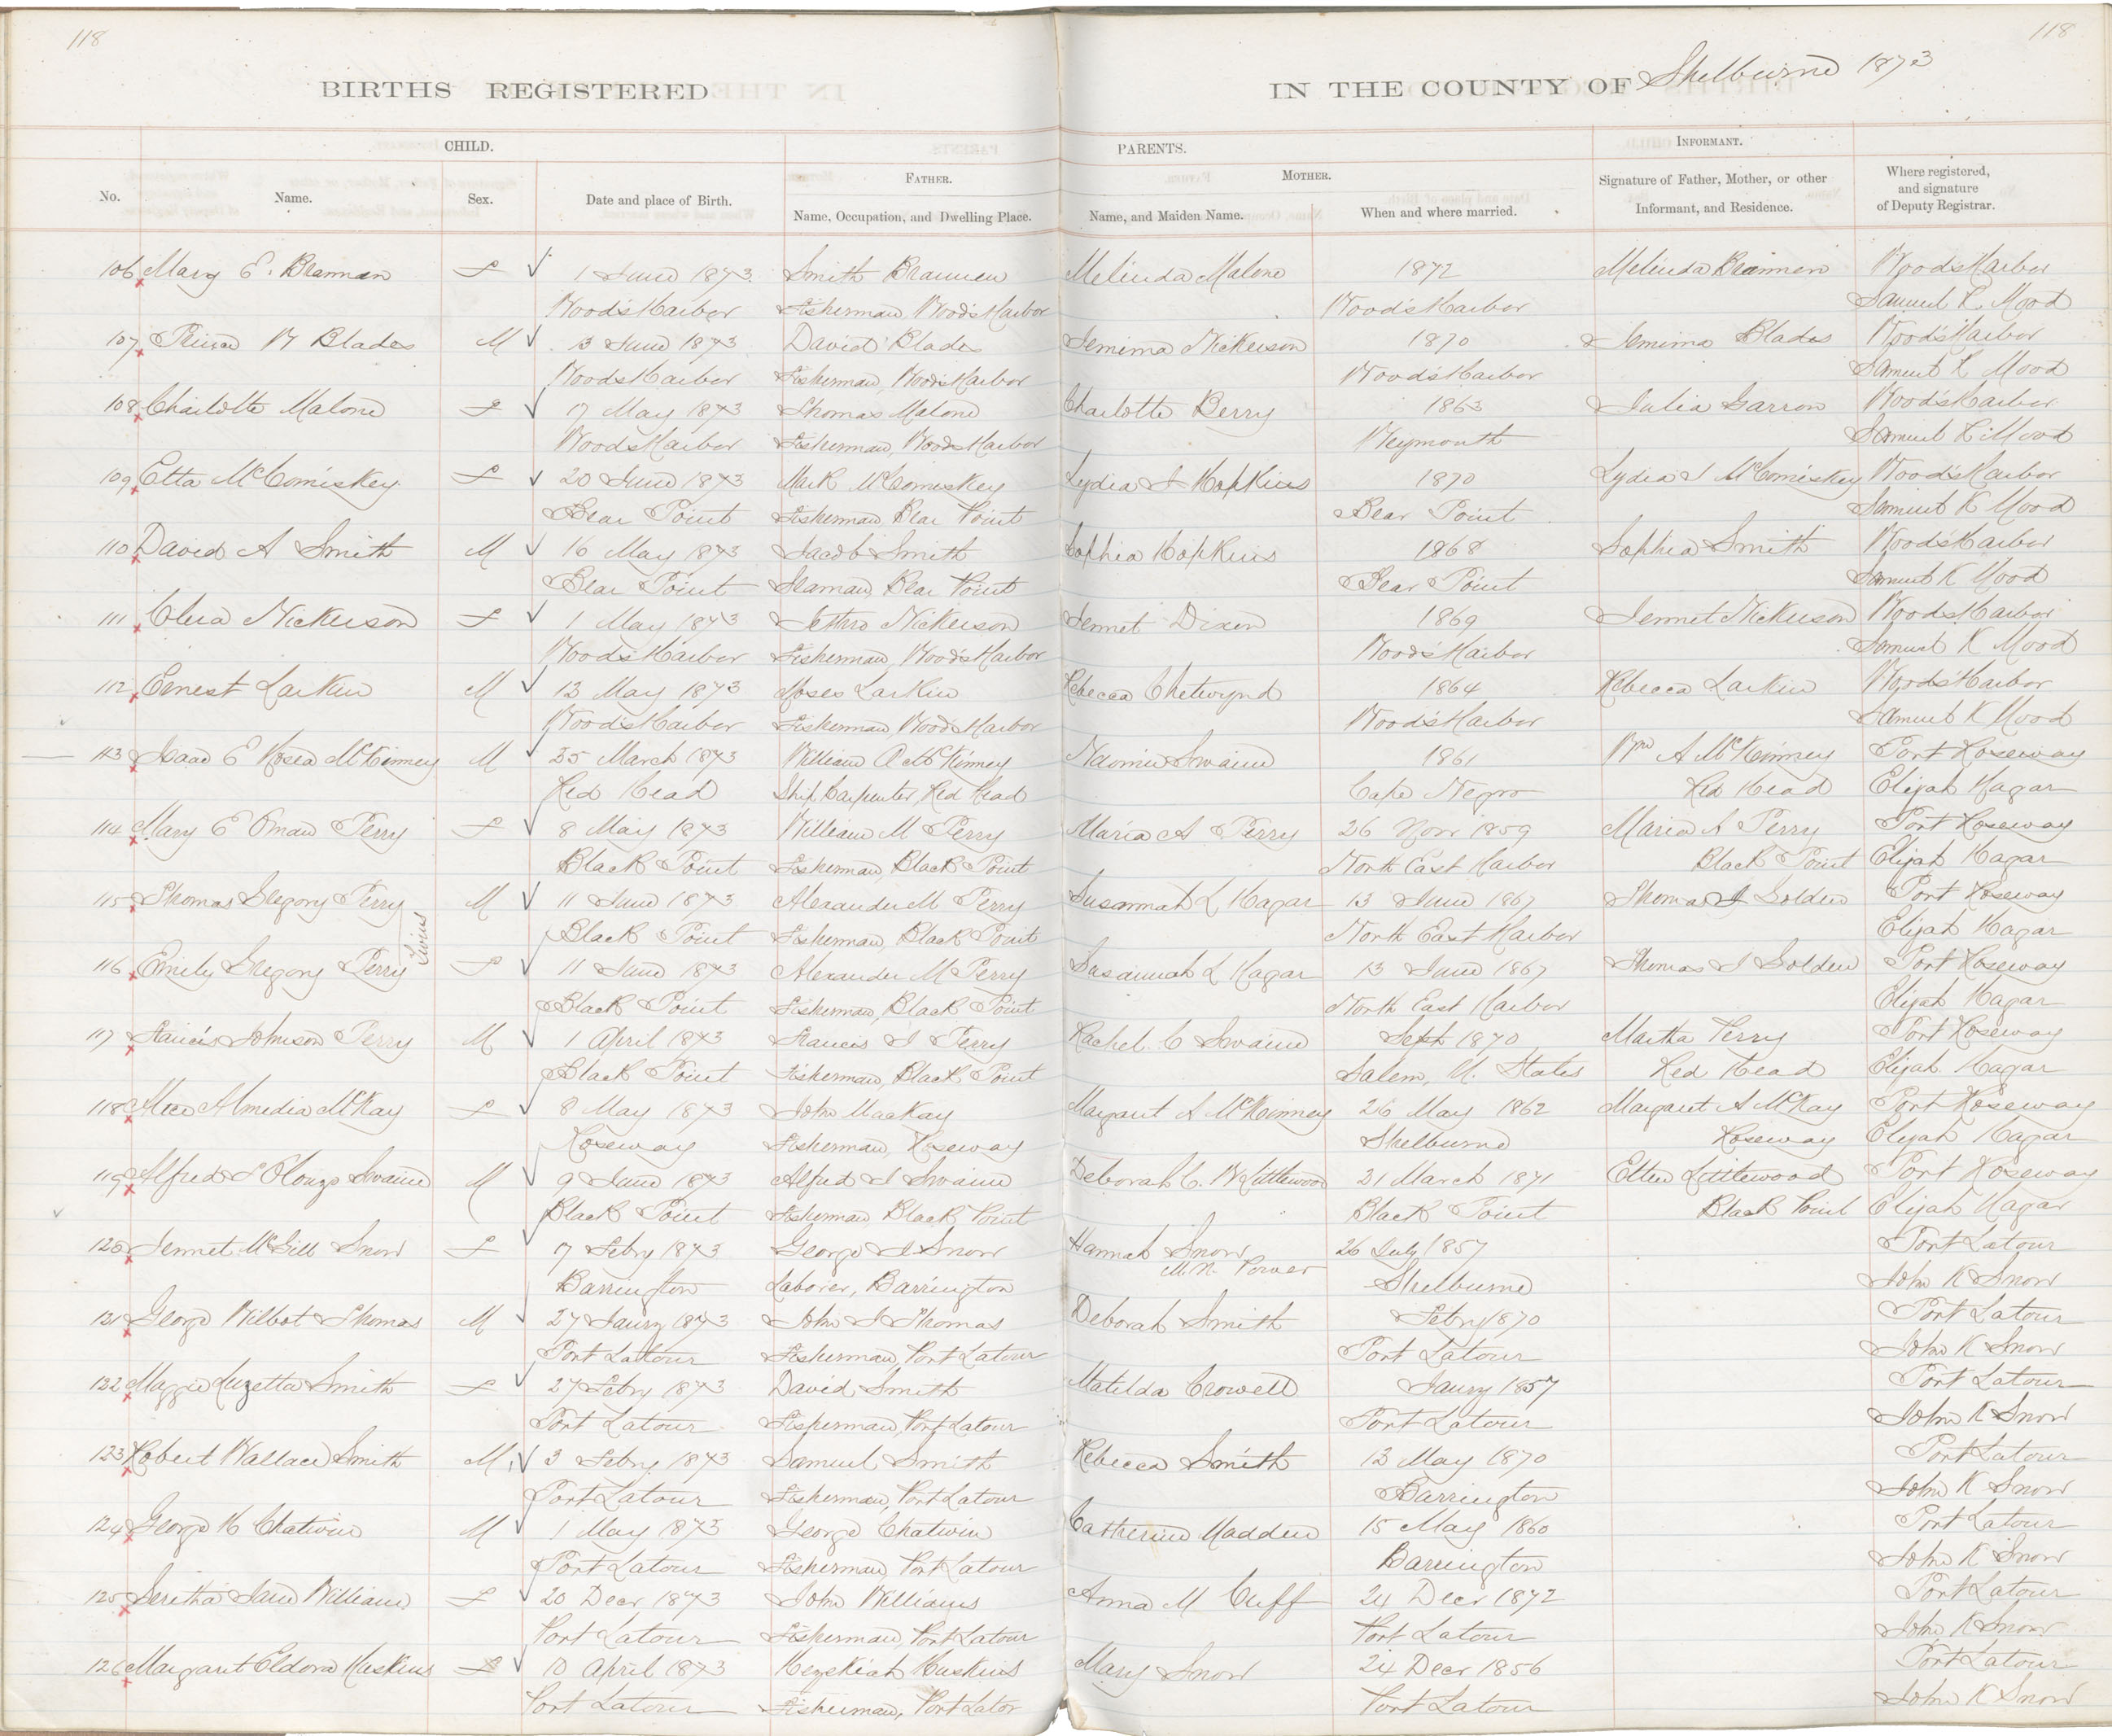 118
118
BIRTHS REGISTERED
IN THE COUNTY OF Shelburne 1873
CHILD.
PARENTS.
INFORMANT.
No.
Name.
Sex.
Date and place of Birth.
FATHER.
Name, Occupation, and Dwelling Place.
MOTHER.
Name, and Maiden Name.
When and where married.
Signature of Father, Mother, or other
Informant, and Residence.
Where registered,
and signature
of Deputy Registrar.
106 Mary E. Brannen F 1 June 1873 Smith Brannen Melinda Malone 1872 Melinda Brannen Woods Harbor
Woods Harbor Fisherman, Woods Harbor Woods Harbor Samuel K Mood
107 W Blades M 13 June 1873 David Blades Jemima Nickerson 1870 Jemima Blades Woods Harbor
Woods Harbor Fisherman, Woods Harbor Woods Harbor Samuel K Mood
108 Charlotte Malone F 17 May 1873 Thomas Malone Charlotte Berry 1863 Julia Garron Woods Harbor
Woods Harbor Fisherman, Woods Harbor Weymouth Samuel K Mood
109 Etta McComiskey F 20 June 1873 Mark McComiskey Lydia J Hopkins 1870 Lydia J McComiskey Woods Harbor
Bear Point Fisherman, Bear Point Bear Point Samuel K Mood
110 David A Smith M 16 May 1873 Jacob Smith Sophia Hopkins 1868 Sophia Smith Woods Harbor
Bear Point Seaman, Bear Point Bear Point Samuel K Mood
111 Nickerson F 1 May 1873 Jethro Nickerson Jennet Dixon 1869 Jennet Nickerson Woods Harbor
Woods Harbor Fisherman, Woods Harbor Woods Harbor Samuel K Mood
112 Ernest Larkin M 13 May 1873 Moses Larkin Rebecca Chetwynd 1864 Rebecca Larkin Woods Harbor
Woods Harbor Fisherman, Woods Harbor Woods Harbor Samuel K Mood
113 Isaac E Hosea McKinney M 25 March 1873 William A McKinney Naomie Swaine 1861 Wm A McKinney Port Roseway
Red Head Ship Carpenter, Red Head Cape Negro Red Head Elijah Hagar
114 Mary E Perry F 8 May 1873 William M Perry Maria A Perry 26 Novr 1859 Maria A Perry Port Roseway
Black Point Fisherman, Black Point North East Harbor Black Point Elijah Hagar
115 Thomas Gregory Perry M 11 June 1873 Alexander M Perry Susannah L Hagar 13 June 1867 Thomas J Golden Port Roseway
Twins
Black Point Fisherman, Black Point North East Harbor Elijah Hagar
116 Emily Gregory Perry F 11 June 1873 Alexander M Perry Susannah L Hagar 13 June 1867 Thomas J Golden Port Roseway
Black Point Fisherman, Black Point North East Harbor Elijah Hagar
117 Francis Johnson Perry M 1 April 1873 Francis J Perry Rachel C Swaine Sept 1870 Martha Perry Port Roseway
Black Point Fisherman, Black Point Salem, U. States Red Head Elijah Hagar
118 Alice Almedia McKay F 8 May 1873 John MacKay Margaret A McKinney 26 May 1862 Margaret A McKay Port Roseway
Roseway Fisherman, Roseway Shelburne Roseway Elijah Hagar
119 Alfred Swaine M 9 June 1873 Alfred J Swaine Deborah C. W Littlewood 21 March 1871 Ellen Littlewood Port Roseway
Black Point Fisherman Black Point Black Point Black Point Elijah Hagar
120 Jennet McGill Snow F 7 Febry 1873 George J Snow Hannah Snow 26 July 1857 Port Latour
M.N. Power
Barrington Laborer, Barrington Shelburne John K Snow
121 George Wilbot Thomas M 27 Jany 1873 John J Thomas Deborah Smith Febry 1870 Port Latour
Port Latour Fisherman, Port Latour Port Latour John K Snow
122 Maggie Luzetta Smith F 27 Febry 1873 David Smith Matilda Crowell Jany 1857 Port Latour
Port Latour Fisherman, Port Latour Port Latour John K Snow
123 Robert Wallace Smith M 3 Febry 1873 Samuel Smith Rebecca Smith 13 May 1870 Port Latour
Port Latour Fisherman, Port Latour Barrington John K Snow
124 George H Chatwin M 1 May 1873 George Chatwin Catherine Madden 15 May 1860 Port Latour
Port Latour Fisherman, Port Latour Barrington John K Snow
125 Jane Williams F 20 Decr 1873 John Williams Anna M Cuff 24 Decr 1872 Port Latour
Port Latour Fisherman, Port Latour Port Latour John K Snow
126 Margaret Eldora Huskins F 10 April 1873 Hezekiah Huskins Mary Snow 24 Decr 1856 Port Latour
Port Latour Fisherman, Port Lator Port Latour John K Snow